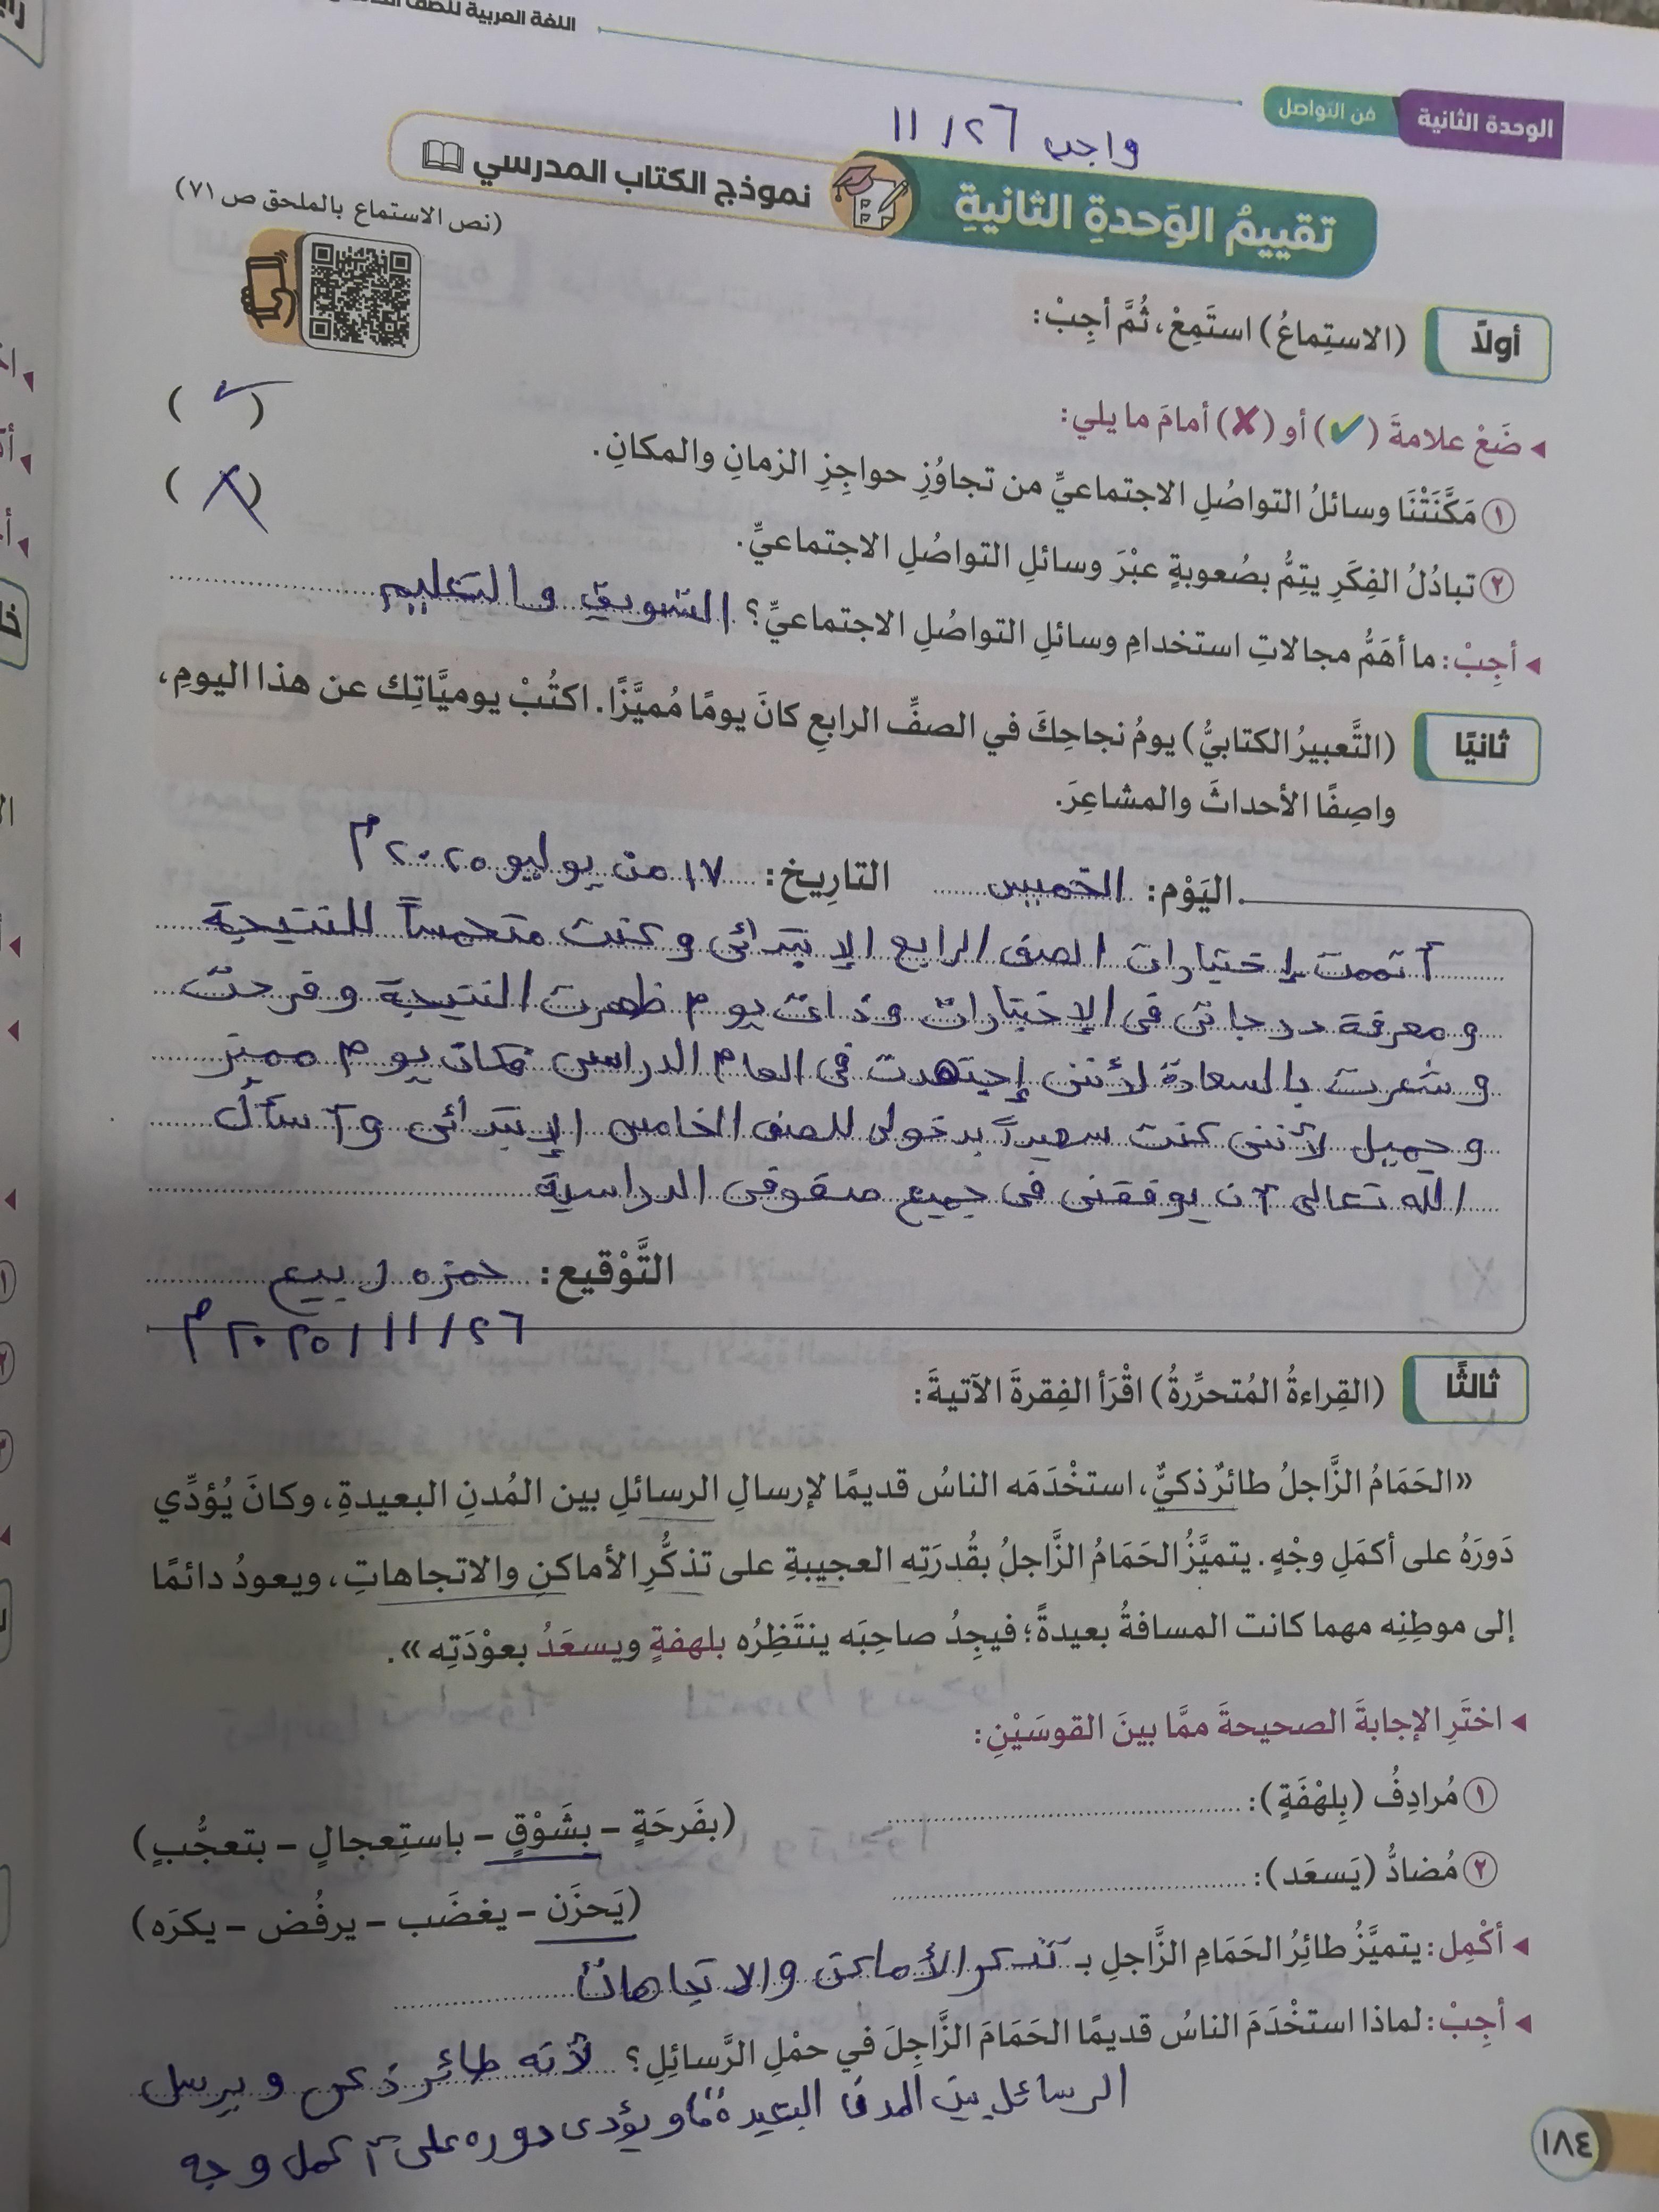 اللغة العربية للصف
الوحدة الثانية
فن التواصل
واجب ٢٦/ ١١
تقييمُ الوَحدةِ الثانيةِ
نموذج الكتاب المدرسي
(نص الاستماع بالملحق ص ٧١)
أولًا
(الاستِماعُ) استَمِعْ، ثُمَّ أجِبْ:
◂ ضَعْ علامةَ (✓) أو (✗) أمامَ ما يلي:
① مَكَّنَتْنَا وسائلُ التواصُلِ الاجتماعيِّ من تجاوُزِ حواجِزِ الزمانِ والمكانِ. (✓)
② تبادُلُ الفِكَرِ يتِمُّ بصُعوبةٍ عبْرَ وسائلِ التواصُلِ الاجتماعيِّ. (✗)
◂ أجِبْ: ما أهَمُّ مجالاتِ استخدامِ وسائلِ التواصُلِ الاجتماعيِّ؟ التسويق والتعليم
ثانيًا
(التَّعبيرُ الكتابيُّ) يومُ نجاحِكَ في الصفِّ الرابعِ كانَ يومًا مُميَّزًا. اكتُبْ يوميَّاتِك عن هذا اليومِ،
واصِفًا الأحداثَ والمشاعِرَ.
اليَوْم: الخميس التارِيخ: ١٧ من يوليو ٢٠٢٥ م
أتممت إختبارات الصف الرابع الإبتدائى وكنت متحمساً للنتيجة
ومعرفة درجاتى فى الإختبارات وذات يوم ظهرت النتيجة وفرحت
وشعرت بالسعادة لأننى إجتهدت فى العام الدراسى فكان يوم مميز
وجميل لأننى كنت سعيداً بدخولى للصف الخامس الإبتدائى وأسأل
الله تعالى أن يوفقنى فى جميع صفوفى الدراسية
التَّوْقيع: حمزه ربيع
٢٦/ ١١/ ٢٠٢٥ م
ثالثًا
(القِراءةُ المُتحرِّرةُ) اقْرَأ الفِقرةَ الآتيةَ:
«الحَمَامُ الزَّاجلُ طائرٌ ذكيٌّ، استخْدَمَه الناسُ قديمًا لإرسالِ الرسائلِ بين المُدنِ البعيدةِ، وكانَ يُؤدِّي
دَورَهُ على أكمَلِ وجْهٍ. يتميَّزُ الحَمَامُ الزَّاجلُ بقُدرَتِه العجيبةِ على تذكُّرِ الأماكنِ والاتجاهاتِ، ويعودُ دائمًا
إلى موطِنِه مهما كانت المسافةُ بعيدةً؛ فيجِدُ صاحِبَه ينتَظِرُه بلهفةٍ ويسعَدُ بعوْدَتِه».
◂ اختَرِ الإجابةَ الصحيحةَ ممَّا بينَ القوسَيْنِ:
① مُرادِفُ (بِلهْفَةٍ): (بفَرحَةٍ – بشَوْقٍ – باستِعجالٍ – بتعجُّبٍ)
② مُضادُّ (يَسعَد): (يَحزَن – يغضَب – يرفُض – يكرَه)
◂ أكْمِل: يتميَّزُ طائِرُ الحَمَامِ الزَّاجلِ بـ تذكر الأماكن والاتجاهات
◂ أجِبْ: لماذا استخْدَمَ الناسُ قديمًا الحَمَامَ الزَّاجِلَ في حمْلِ الرَّسائِلِ؟ لأنه طائر ذكى ويرسل
الرسائل بين المدن البعيدة ويؤدى دوره على أكمل وجه
١٨٤